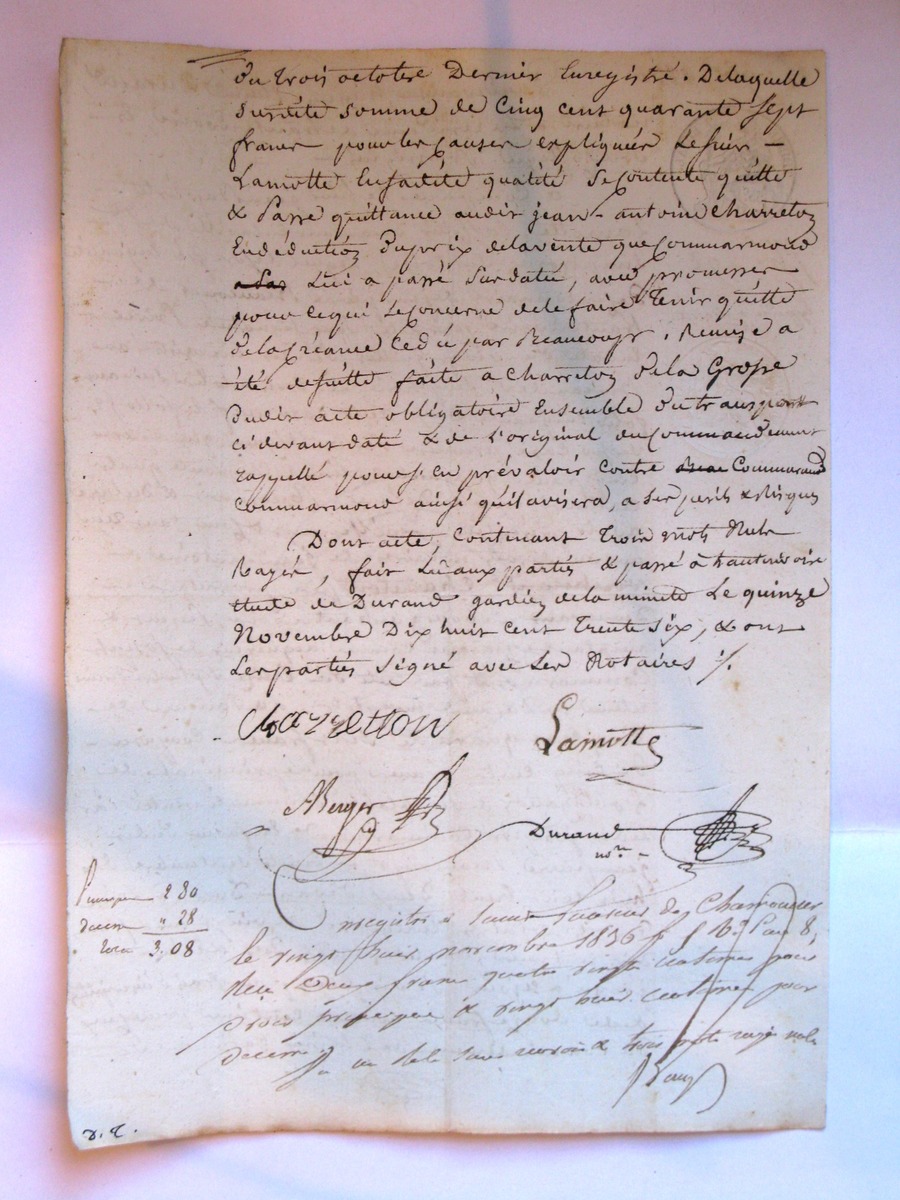 du trois octobre Dernier Enregistré. De laquelle
susdite somme de Cinq cent quarante sept
francs pour les causes expliquées Le sieur -
Lamotte En sadite qualité Se contente quitte
& Passe quittance audit jean-antoine Charreton
En déduction du prix de la vente que Commarmond
Lui a passé Sus datée, avec promesse
pour ce qui Le concerne de le faire Tenir quitte
de la Créance Cedée par Beaucoup, Remise a
été desuitte faite a Charreton de la Grosse
dudit acte obligatoire Ensemble du transport
ci devant daté & de L'original du Commandement
rappellé pour s'en prévaloir contre Commarmond
ainsi quil avisera, a ses perils & Risques
Dont acte, Contenant Trois mots Nuls
Rayés, fait Lu aux parties & passé à hauterivoire
Etude de Durand gardien de la minute Le quinze
Novembre Dix huit cent Trente six, & ont
Les parties Signé avec Les Notaires ./.
Charretton Lamotte
Berger Durand
nore
Principal 2 80
Decime " 28
Total 3,08
Enregistré à Saint Laurent de Chamousset
le vingt huit novembre 1836 f
Reçu Deux francs quatre vingt centimes pour
Droit principal & vingt huit centimes pour
Decime trois mots rayés nuls
D. T.